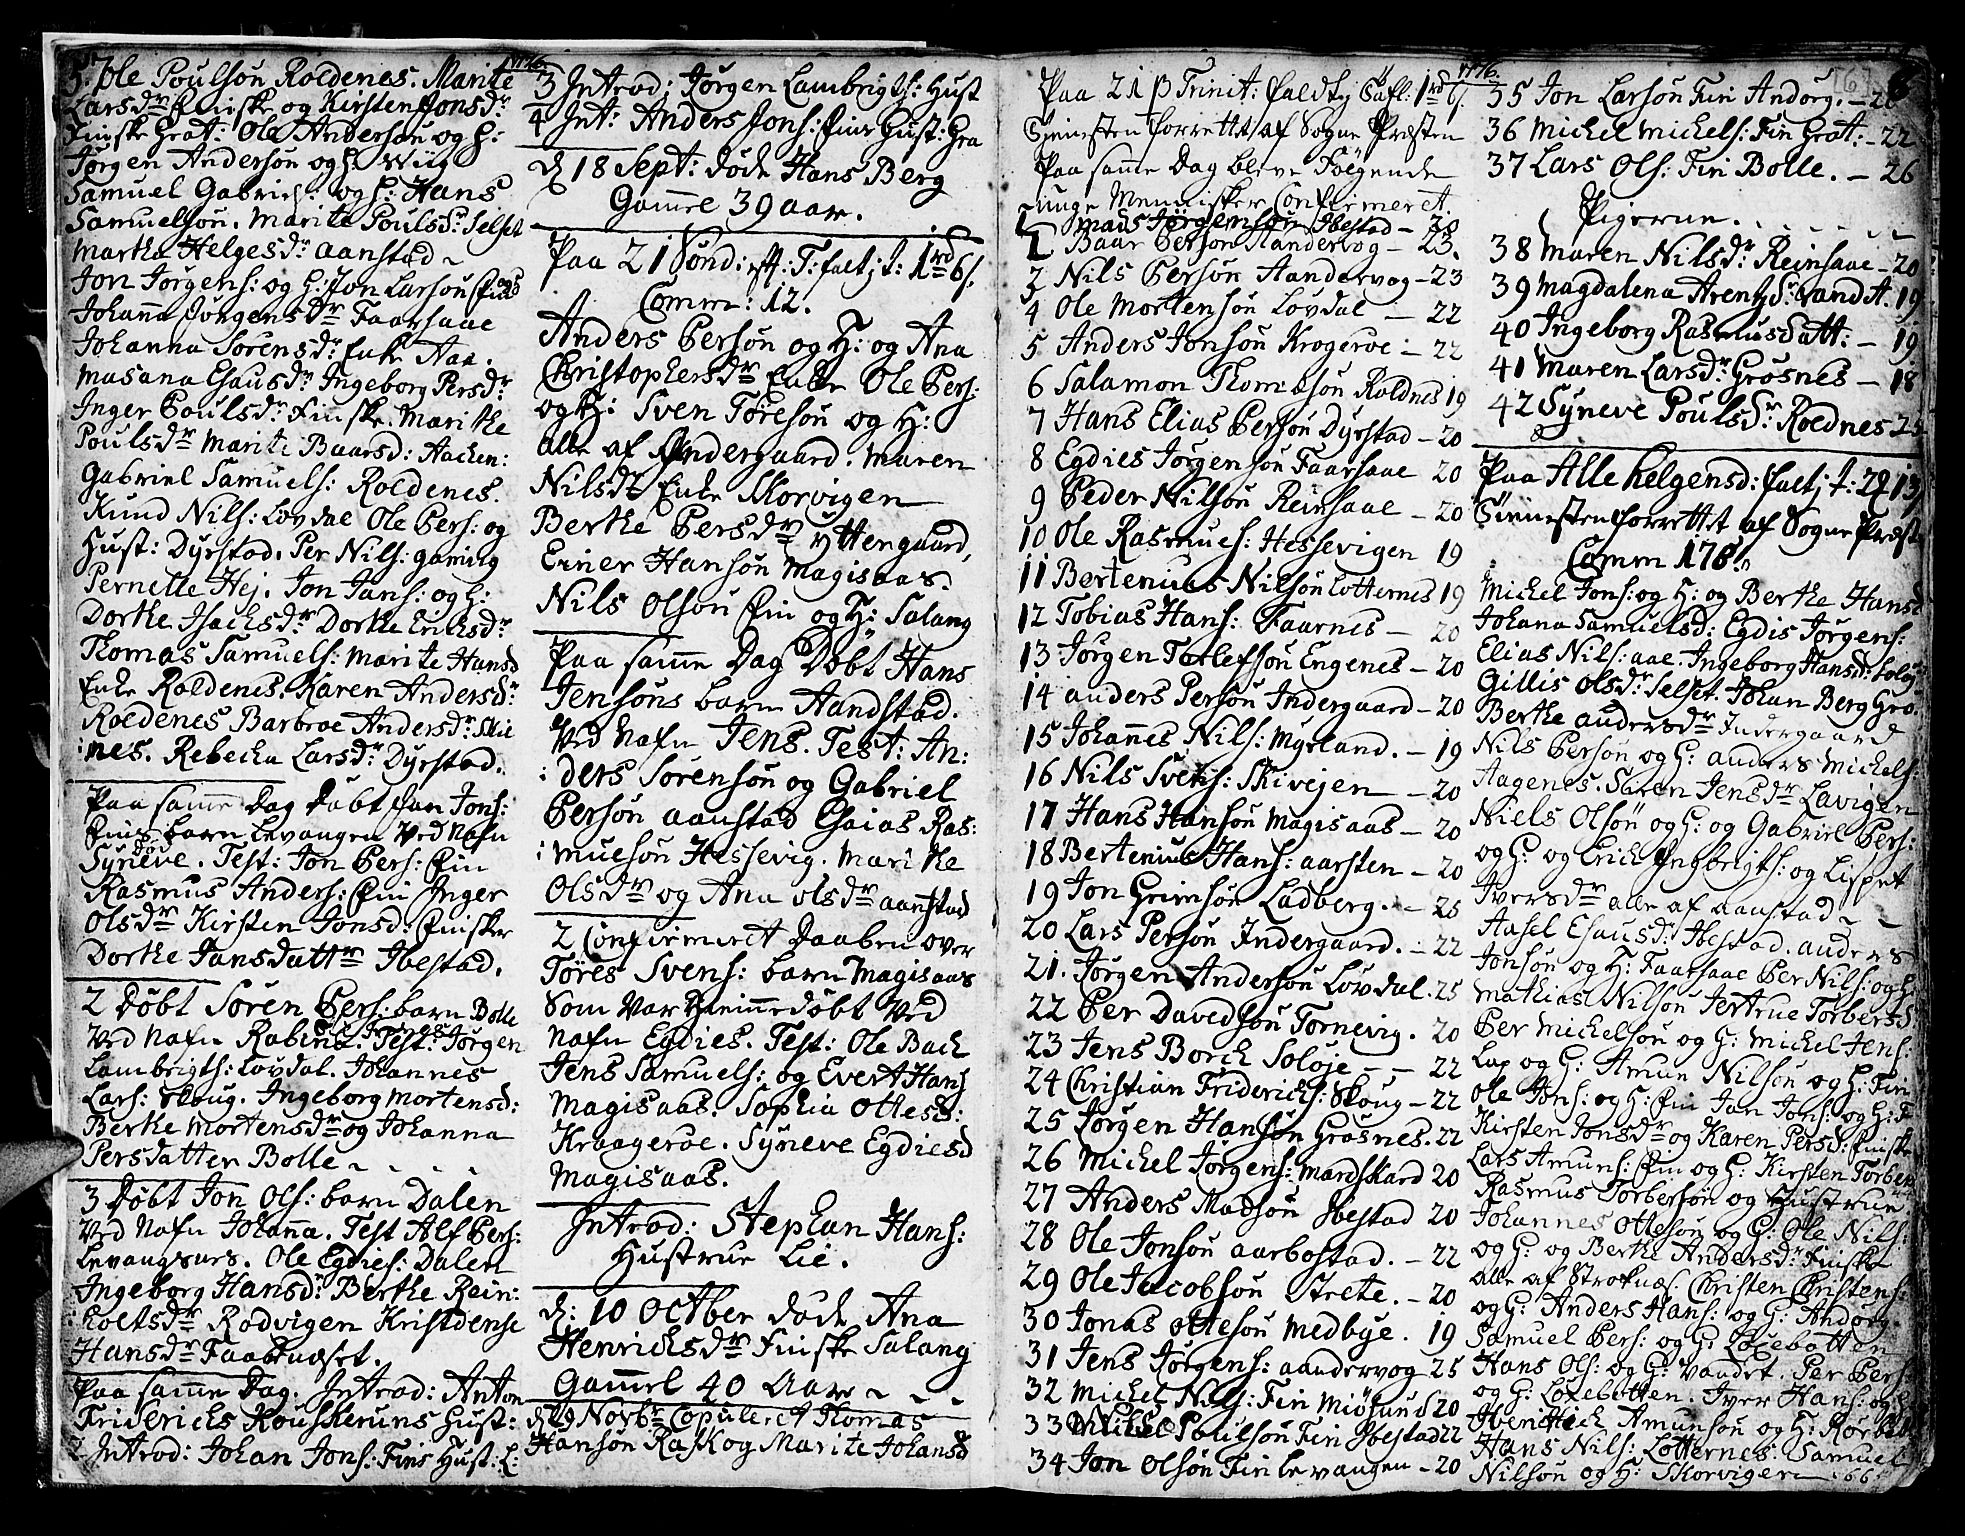 1776.
5. Ole Poulsøn Roldenes. Marite
Larsdr Finske og Kirsten Jonsdr
Finske Grat: Ole Andersøn og H:
Jørgen Andersøn og H: Wiig
Samuel Gabriels: og H: Hans
Samuelsøn. Marite Poulsdr Selset
Martha Helgesdr aanstad
Jon Jørgens: og H: Jon Larsøn
Johanna Jørgensdr Faarsaae
Johanna Sørensdr Enke Aae.
Masana Esausdr Ingeborg Persdr
Inger Poulsdr Finske. Marithe
Poulsdr Marite Baarsd: Aachen:
Gabriel Samuels: Roldenes.
Knud Nils: Løvdal Ole Pers: og
Hust: Dyrstad. Per Nils: gaming
Pernelle Hej. Jon Jans: og H:
Dorthe Isachsdr Dorthe Erichsdr
Thomas Samuels: Marite Hansd
Enke Roldenes. Karen Andersdr
Roldenes Barbroe Andersdr Skie
:nes. Rebecka Larsdr Dyrstad.
Paa samme Dag døbt Jan Jons:
Fins barn Levangen Ved Nafn
Syneve. Test: Jon Pers: Fin
Rasmus Anders: Fin Inger
Olsdr Kirsten Jonsd: Finske
Dorthe Jansdattr Ibestad.
2 Døbt Søren Pers: barn Bolle
Ved Nafn Test: Jørgen
Lambrigts: Løvdal. Johannes
Lars: Skoug. Ingeborg Mortensd:
Berthe Mortensdr og Johanna
Persdatter Bolle
3 Døbt Jon Ols: barn Dalen
Ved Nafn Johanna. Test Alf Pers:
Levangsnes. Ole Egdies: Dalen
Ingeborg Hansdr Berthe Rein:
holtsdr Rodvigen Kristdense
Hansdr Faabæuset.
Paa samme Dag. Introd: Anton
Friderichs Hust:
Introd: Johan Jons: Fins Hust: L:
3 Introd: Jørgen Lambrigts: Hust
4 Int: Anders Jons: Fins Hust: Gra
d 18 Sept: døde Hans Berg
Gammel 39 aar.
Paa 21 Sønd: T: faltj T: 1rd 6s.
Comm: 12.
Anders Persøn og H: og Ana
Christophersdr Enke Ole Pers:
og H: Sven Tøresøn og H:
alle af Indergaard. Maren
Nilsdr Enke Skorvigen
Berthe Persdr Yttergaard,
Einer Hansøn Magisaas.
Nils Olsøn Fin og H: Salang
Paa samme Dag Døbt Hans
Jensøns barn Aandstad.
Ved Nafn Jens. Test: An:
:ders Sørensøn og Gabriel
Persøn aanstad Esaias Ras:
:muesøn Hessevig. Marithe
Olsdr og Ana olsdr aanstad
2 Confirmeret Daaben over
Tøres Svens: barn Magisaas
Som Var Hiemmedøbt Ved
Nafn Egdies. Test: Ole Bach
Jens Samuels: og Evert Hans
Magisaas. Sophia Ottesd:
Kraagerøe. Syneve Egdiesd
Magisaas.
Introd: Stephan Hans:
Hustrue Lie.
d: 10 Octber døde Ana
Henrichsdr Finske Salang
Gammel 40 Aar
d 29 Novbr Copuleret Thomas
Hansøn Rask og Marite Johansd
1776.
Paa 21 p Trinit: faldty Tafl: 1rd 6s.
Tienesten forrettet af Sogne Præsten
Paa samme Dag bleve Følgende
unge Mennisker Confirmeret.
1 Mads Jørgensøn Ibestad - 20
2 Baar Persøn Aandervog - 23.
3 Nils Persøn Aandervog - 23
4 Ole Mortensøn Løvdal - 22
5 Anders Jonsøn Krogeroe - 22
6 Salamon Thomesøn Roldnes 19
7 Hans Elias Persøn Dyrstad - 20
8 Egdies Jørgensøn Faarsaae 20
9 Peder Nilsøn Reinsaae - 20
10 Ole Rasmues: Hessevigen 19
11 Bertenius Nilsøn Lotternes 19
12 Tobias Hans: Faarnes - 20
13 Jørgen Totlefsøn Engenes - 20
14 anders Persøn Indergaard - 20
15 Johannes Nils: Myrland. - 19
16 Nils Svens: Skivejen - 20
17 Hans Hansøn Magisaas - 20
18 Bertenius Hans: aarsten - 20
19 Jon Grimsøn Ladberg. - 25
20 Lars Persøn Indergaard. - 22
21. Jørgen Andersøn Løvdal. 25
22 Per Davedsøn Tornevig. 20
23 Jens Borch Soløje - - 22
24 Christian Friderich: Skoug - 22
25 Jørgen Hansøn Grosnes. 22
26 Michel Jørgens: Mardskard 20
27 Anders Madsøn Ibestad 20
28 Ole Jonsøn aarbostad. - 22
29 Ole Jacobsøn Strete. - 20
30 Jonas Ottesøn Medbye. 19
31 Jens Jørgens: aandervog 25
32 Michel Nils: Fin Miøsund 20
33 Michel Poulsøn Fin Ibestad 22
34 Jon Olsøn Fin Levangen - 20
35 Jon Larsøn Fin Andorg. - 20
36 Michel Michels: Fin Grat: - 22
37 Lars Ols: Fin Bolle. - 26
Pigerne.
38 Maren Nilsdr Reinsaae - 20
39 Magdalena Arentzdr Vandt. 19
40 Ingeborg Rasmusdatt: - 19
41 Maren Larsdr Grosnes - 18
42 Syneve Poulsdr Roldnes 25
Paa Alle helgensd: faltj T: 2 13
Tienesten forrettet af Sogne Præst
Comm 178.
Michel Jons: og H: og Berthe Hansd
Johana Samuelsd: Egdis Jørgens:
Elias Nils: aae. Ingeborg Hansdr Soløj
Gillis olsdr Selset. Johan Berg Gro.
Berthe andersdr Indergaard
Nils Persøn og H: anders Michels:
Aagenes. Søren Jensdr Lavigen
Niels Olsøn og H: og Gabriel Pers:
og H: og Erich Ingbrigts: og Lispet
Iversdr alle af aanstad
Aasel Esausdr Ibestad. anders
Jonsøn og H: Faarsaae Per Nils: og H:
Mathias Nilsøn Jertrue Torbersd
Per Michelsøn og H: Michel Jens:
Lap og H: Amun Nilsøn og H: Fin
Ole Jons: og H: Fin Jan Jons: og H: F
Kirsten Jonsdr og Karen Persd: Finske
Lars Amuns: Fin og H: Kirsten Torbers
Rasmus Torbersøn og Hustrue
Johannes Ottesøn og H: Ole Nils:
og H: og Berthe Andersdr Finske
alle af Stroknæs. Christen Christens:
og H: Anders Hans: og H: Andorg.
Samuel Pers: og H: Løxebotten
Hans Ols: og H: Vandet. Per Pers:
og H: Løxebotten. Iver Hans: og H:
Amunsøn og H: Rørbach
Hans Nils: Lotternes. Samuel
Nilsøn og H: Skorvigen